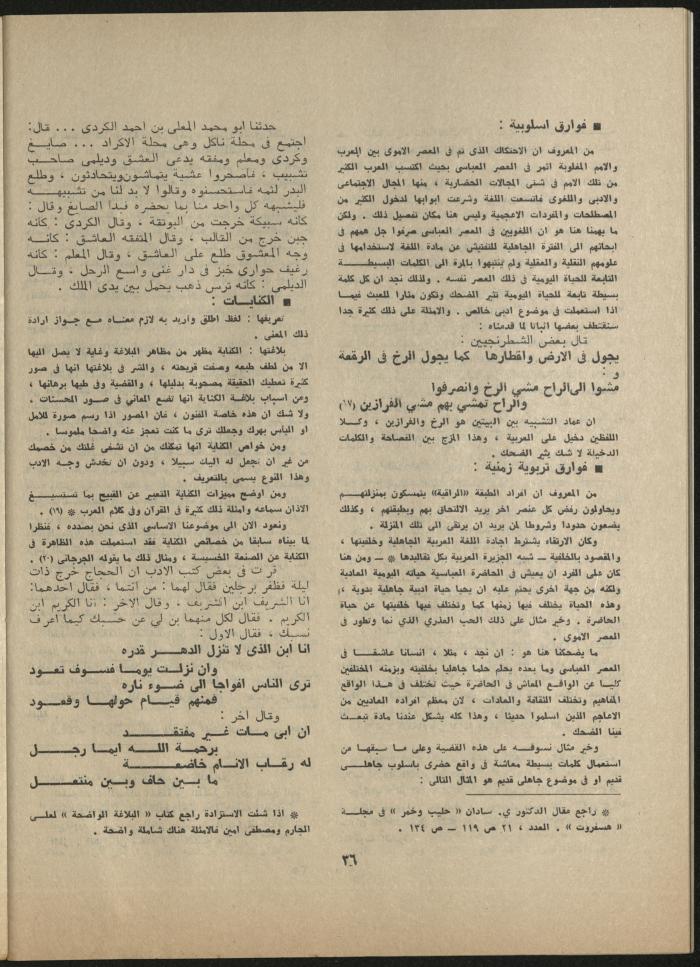 ■ فوارق اسلوبية :
من المعروف ان الاحتكاك الذى تم فى العصر الاموى بين العرب
والامم المغلوبة اثر فى العصر العباسى بحيث اكتسب العرب الكثير
من تلك الامم فى شتى المجالات الحضارية ، منها المجال الاجتماعى
والادبى واللغوى فاتسعت اللغة وشرعت ابوابها لدخول الكثير من
المصطلحات والمفردات الاعجمية وليس هنا مكان تفصيل ذلك . ولكن
ما يهمنا هنا هو ان اللغويين فى العصر العباسى صرفوا جل همهم فى
ابحاثهم الى الفترة الجاهلية للتفتيش عن مادة اللغة لاستخدامها فى
علومهم النقلية والعقلية ولم ينتبهوا بالمرة الى الكلمات البسيطـــة
التابعة للحياة اليومية فى ذلك العصر نفسه . ولذلك نجد ان كل كلمة
بسيطة تابعة للحياة اليومية تثير الضحك وتكون مثارا للعبث فيمـا
اذا استعملت فى موضوع ادبى خالص . والامثلة على ذلك كثيرة جدا
سنقتطف بعضها اثباتا لما قدمناه :
قال بعض الشطرنجيين :
يجول فى الارض واقطارها كما يجول الرخ فى الرقعة
و :
مشوا الى الراح مشي الرخ وانصرفوا
والراح تمشي بهم مشي الفرازين (١٧)
ان عماد التشبيه بين البيتين هو الرخ والفرازين ، وكـــلا
اللفظين دخيل على العربية ، وهذا المزج بين الفصاحة والكلمات
الدخيلة لا شك يثير الضحك .
■ فوارق تربوية زمنية :
من المعروف ان افراد الطبقة «الراقية» يتمسكون بمنزلتهـــم
ويحاولون رفض كل عنصر اخر يريد الالتحاق بهم وبطبقتهم ، وكذلك
يضعون حدودا وشروطا لمن يريد ان يرتقى الى تلك المنزلة .
وكان الارتقاء يشترط اجادة اللغة العربية الجاهلية وخلفيتها ،
والمقصود بالخلفية ــ شبه الجزيرة العربية بكل تقاليدها * ــ ومن هنا
كان على الفرد ان يعيش فى الحاضرة العباسية حياته اليومية العادية
ولكنه من جهة اخرى يحتم عليه ان يحيا حياة ادبية جاهلية بدوية ،
وهذه الحياة يختلف فيها زمنها كما وتختلف فيها خلفيتها عن حياة
الحاضرة . وخير مثال على ذلك الحب العذري الذي نما وتطور فى
العصر الاموي .
ما يضحكنا هنا هو : ان نجد ، مثلا ، انسانا عاشقـــا فى
العصر العباسى وما بعده يحلم حلما جاهليا بخلفيته وبزمنه المختلفين
كليـا عن الواقـع المعاش فى الحاضرة حيث تختلف فى هـذا الواقع
المفاهيم وتختلف الثقافة والعادات ، لان معظم افراده العاديين من
الاعاجم الذين اسلموا حديثا ، وهذا كله يشكل عندنا مادة تبعـث
فينا الضحك .
وخير مثال نسوقـــه على هذه القضية وعلى مـا سبقها من
استعمال كلمات بسيطة معاشة فى واقع حضرى باسلوب جاهلـــى
قديم او فى موضوع جاهلى قديم هو المثال التالى :
* راجع مقال الدكتور ي. سادان « حليب وخمر » فى مجلـــة
« هسفروت » . العدد ، ٢١ ص ١١٩ ــ ص ١٣٤ .
حدثنا ابو محمد المعلى بن احمد الكردى ... قال:
اجتمع فى محلة ناكل وهى محلة الاكراد ... صايــغ
وكردى ومعلم ومفقه يدعى العشق وديلمى صاحــب
تشبيب ، فاصحروا عشية يتماشون ويتحادثون ، وطلع
البدر لتمه فاستحسنوه وقالوا لا بد لنا من تشبيهـــه
فليشبهه كل واحد منا بما يحضره فبدأ الصايغ وقال :
كانه سبيكة خرجت من البوتقة ، وقال الكردى : كانه
جبن خرج من القالب ، وقال المتفقه العاشق : كانـــه
وجه المعشوق طلع على العاشق ، وقال المعلم : كانه
رغيف حوارى خبز فى دار غنى واسع الرحل ، وقــال
الديلمى : كانه ترس ذهب يحمل بين يدى الملك .
■ الكنايـــات :
تعريفها : لفظ اطلق واريد به لازم معنـاه مـع جـواز ارادة
ذلك المعنى .
بلاغتها : الكناية مظهر من مظاهر البلاغة وغاية لا يصل اليها
الا من لطف طبعه وصفت قريحته ، والسر فى بلاغتها انها فى صور
كثيرة تعطيك الحقيقة مصحوبة بدليلها ، والقضية وفى طيها برهانها ،
ومن اسباب بلاغة الكناية انها تضع المعانى فى صـور المحسنات .
ولا شك ان هذه خاصة الفنون ، فان المصور اذا رسم صورة للامل
او الياس بهرك وجعلك ترى ما كنت تعجز عنه واضحا ملموسا .
ومن خواص الكناية انها تمكنك من ان تشفى غلتك من خصمك
من غير ان تجعل له اليك سبيلا ، ودون ان تخدش وجـه الادب
وهذا النوع يسمى بالتعريف .
ومن اوضح مميزات الكناية التعبير عن القبيح بما تستسيــغ
الاذان سماعه وامثلة ذلك كثيرة فى القران وفى كلام العرب * (١٩) .
ونعود الان الى موضوعنا الاساسى الذى نحن بصدده ، فنظرا
لما بيناه سابقا من خصائص الكناية فقد استعملت هذه الظاهرة فى
الكناية عن الصنعة الخسيسة ، ومثال ذلك ما يقوله الجرجانى (٢٠) .
قرت فى بعض كتب الادب ان الحجاج خرج ذات
ليلة فظفر برجلين فقال لهما : من انتما ، فقال احدهما:
انا الشريف ابن الشريف ، وقال الاخر : انا الكريم ابن
الكريم . فقال لكل منهما بن لي عن حسبك كيما اعرف
نسبك ، فقال الاول :
انا ابن الذى لا تنزل الدهـــر قدره
وان نزلـــت يومـا فسـوف تعـود
ترى الناس افواجا الى ضـوء ناره
فمنهم قيـــام حولهــا وقعـود
وقال اخر :
ان ابى مـــات غيـــر مفتقـــد
برحمة اللـــه ايمـا رجـــل
له رقـاب الانــام خاضعـــة
ما بــين حاف وبــين منتعـــل
* اذا شئت الاستزادة راجع كتاب « البلاغة الواضحة » لعلـى
الجارم ومصطفى امين فالامثلة هناك شاملة واضحة .
٣٦